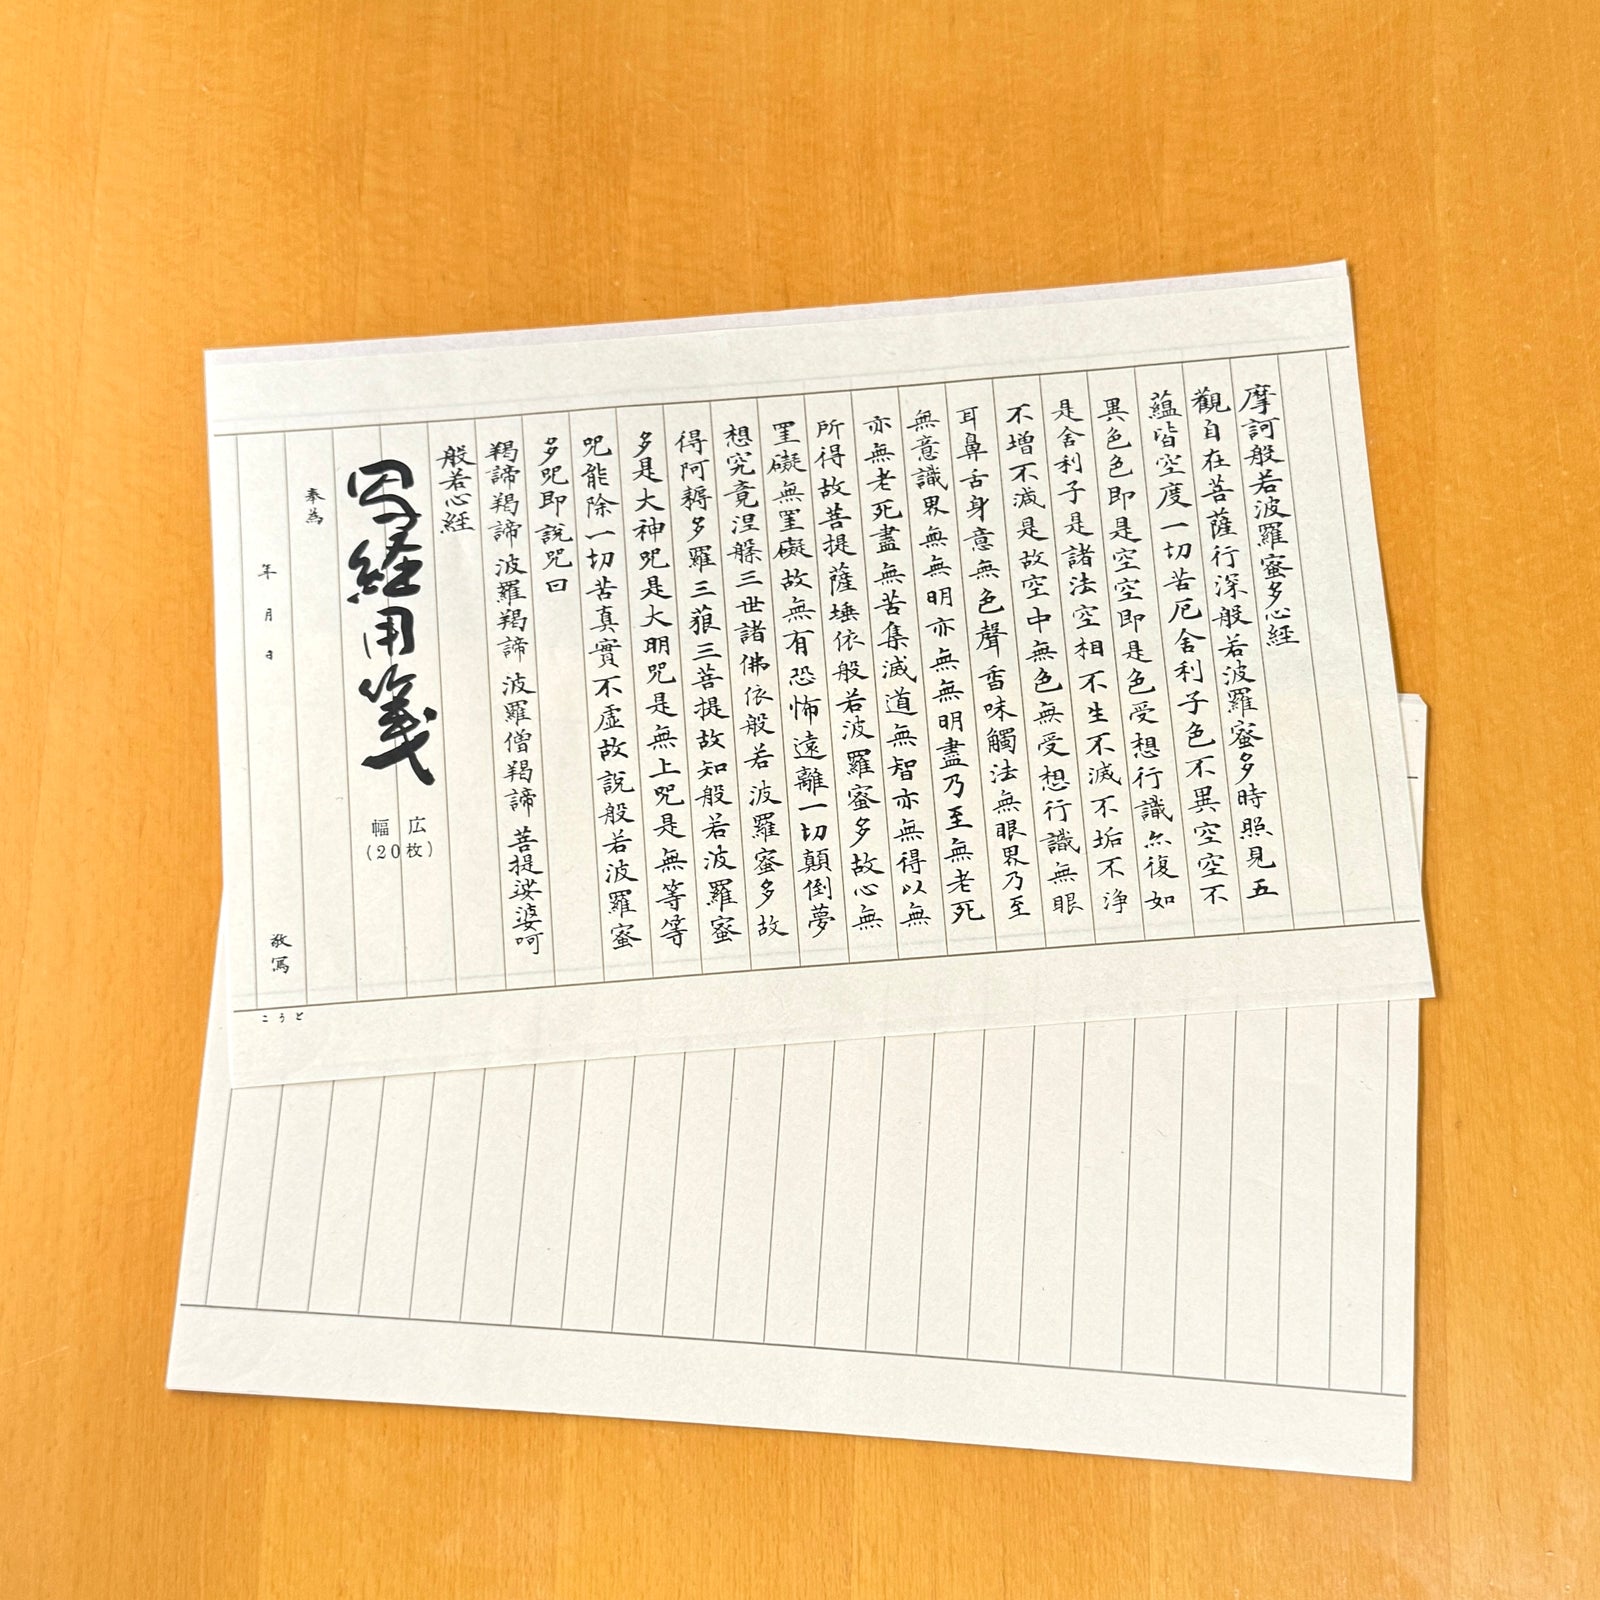 摩訶般若波羅蜜多心経
觀自在菩薩行深般若波羅蜜多時照見五
蘊皆空度一切苦厄舍利子色不異空空不
異色色即是空空即是色受想行識亦復如
是舍利子是諸法空相不生不滅不垢不浄
不増不減是故空中無色無受想行識無眼
耳鼻舌身意無色聲香味觸法無眼界乃至
無意識界無無明亦無無明盡乃至無老死
亦無老死盡無苦集滅道無智亦無得以無
所得故菩提薩埵依般若波羅蜜多故心無
罣礙無罣礙故無有恐怖遠離一切顛倒夢
想究竟涅槃三世諸佛依般若波羅蜜多故
得阿耨多羅三藐三菩提故知般若波羅蜜
多是大神咒是大明咒是無上咒是無等等
咒能除一切苦真實不虚故說般若波羅蜜
多咒即說咒曰
羯諦羯諦 波羅羯諦 波羅僧羯諦 菩提娑婆呵
般若心経
写経用箋
幅広
(20枚)
奉為
年 月 日
敬写
こうど